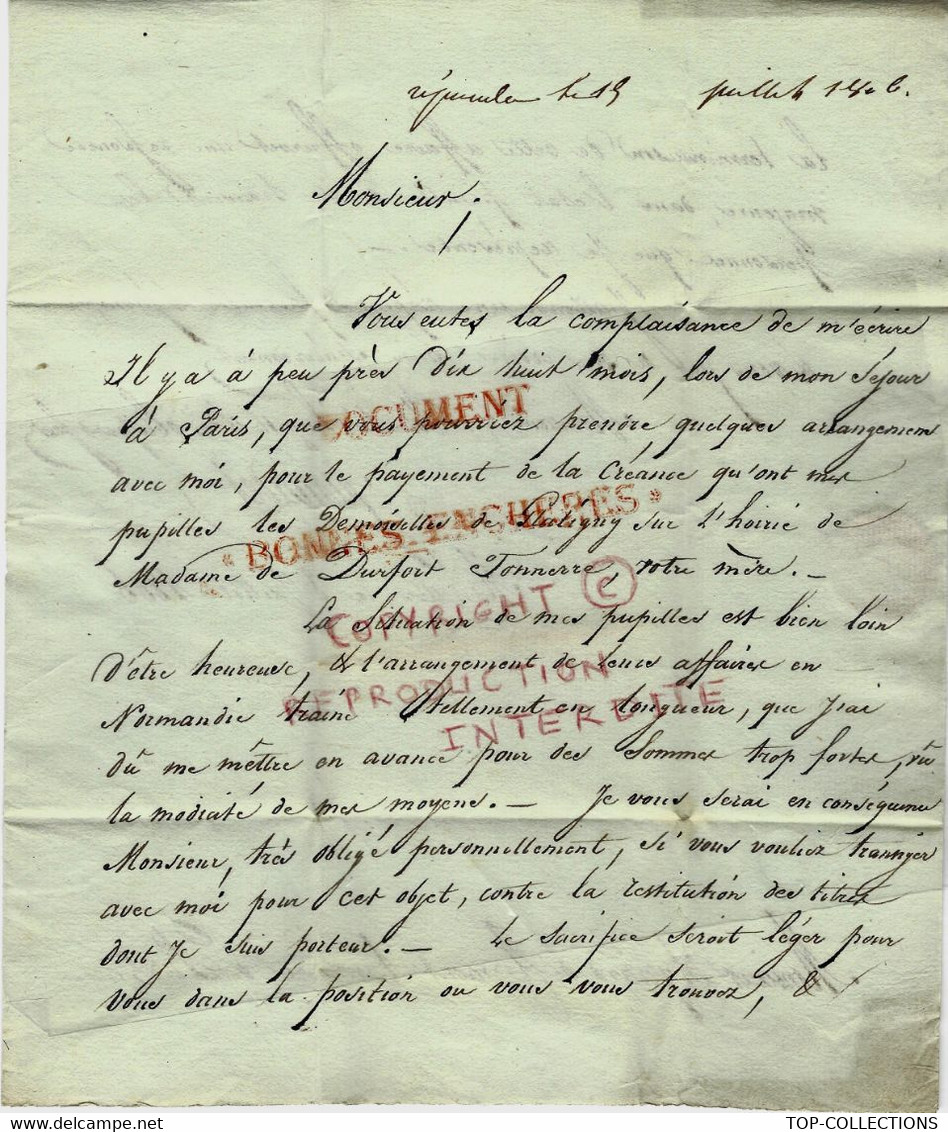 répondu le 19 juillet 1806.
Monsieur,
Vous eutes la complaisance de m'écrire
Il y a à peu près dix huit mois, lors de mon Séjour
à Paris, que vous pourriez prendre quelques arrangemens
DOCUMENT
avec moi, pour le payement de la Créance qu'ont mes
pupilles les Demoiselles de sur l'hoirie de
" BONNES-ENCHERES "
Madame de Durfort Tonnerre, votre mère. -
COPYRIGHT ©
La Situation de mes pupilles est bien loin
d'être heureuse, & l'arrangement de leurs affaires en
REPRODUCTION
Normandie traine tellement en longueur, que J'ai
INTERDITE
dû me mêttre en avance pour des Sommes trop fortes, vû
la modicité de mes moyens. - Je vous serai en conséquence
Monsieur, très obligé personnellement, Si vous vouliez
avec moi pour cet objet, contre la restitution des titres
dont Je suis porteur. - Le sacrifice seroit léger pour
vous dans la position ou vous vous trouvez, &
TOP-COLLECTIONS